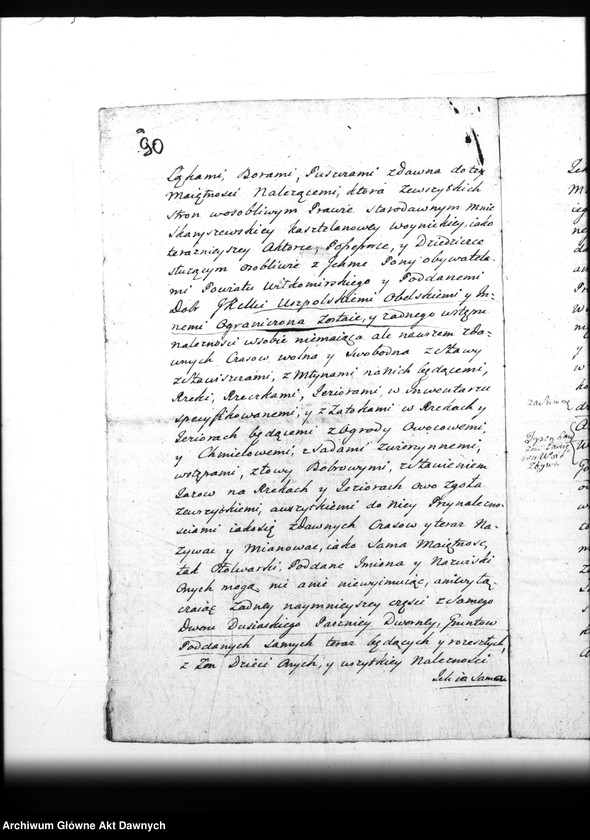 90
Łąkami, Borami, Puszczami zdawna do tey
Maiętnosci Należącemi, ktora zewszyskich
stron wosobliwym Prawie starodawnym mnie
Skaryszewskiey Kasztelanowey Woynickiey, iako
teraznieyszey Aktorce, Possessorce, y Dziedziczce
służącym osobliwie z Ichme Pany obywatela-
mi Powiatu Wiłkomirskiego y Poddanemi
Dobr JKMci Uszpolskiemi Obelskiemi y In-
nemi Ograniczona Zostaie, y żadnego wstępu
należnosci wsobie niemaiąca ale nawszem zda-
wnych Czasow wolna y Swobodna z Stawy
z Stawiszczami, z Młynami na Nich będącemi,
Rzeki, Rzeczkami, Jeziorami, w Inwentarzu
specyfikowanemi, y z Zatokami w Rzekach y
Jeziorach będącemi z Ogrody Owocowemi,
y Chmielowemi, z Sadami zwierzynnemi,
wstępami, z łowy Bobrowymi, z Stawieniem
Jazow na Rzekach y Jeziorach Owo zgoła
zewszyskiemi, a wszyskiemi do Niey Przynależno-
sciami iakosię zdawnych Czasow y teraz Na-
zywać y Mianować, iako Sama Maiętność,
tak Folwarki, Poddane Imiona y Nazwiski
Onych mogą, nic a nic niewyimuiąc, aniwyłą-
czaiąc Żadney naymnieyszey części z Samego
Dworu Dusiackiego Paszniey Dworney, Gruntow
Poddanych Samych teraz będących y rozeszłych,
z Żon Dzieci Onych, y wszyskiey Należnosci